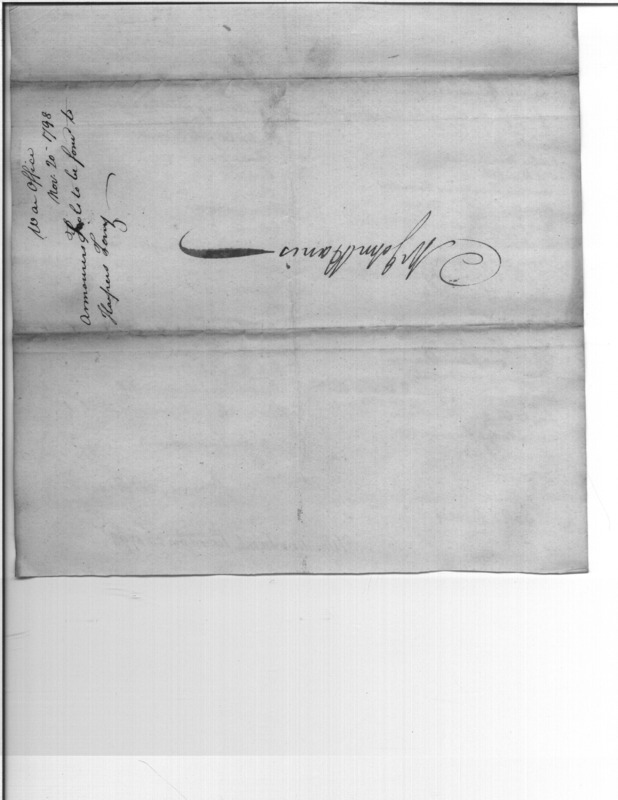 War Office
Nov. 20 - 1798
Armourers Tools to be send to
Harpers Ferry
Mr John Harris